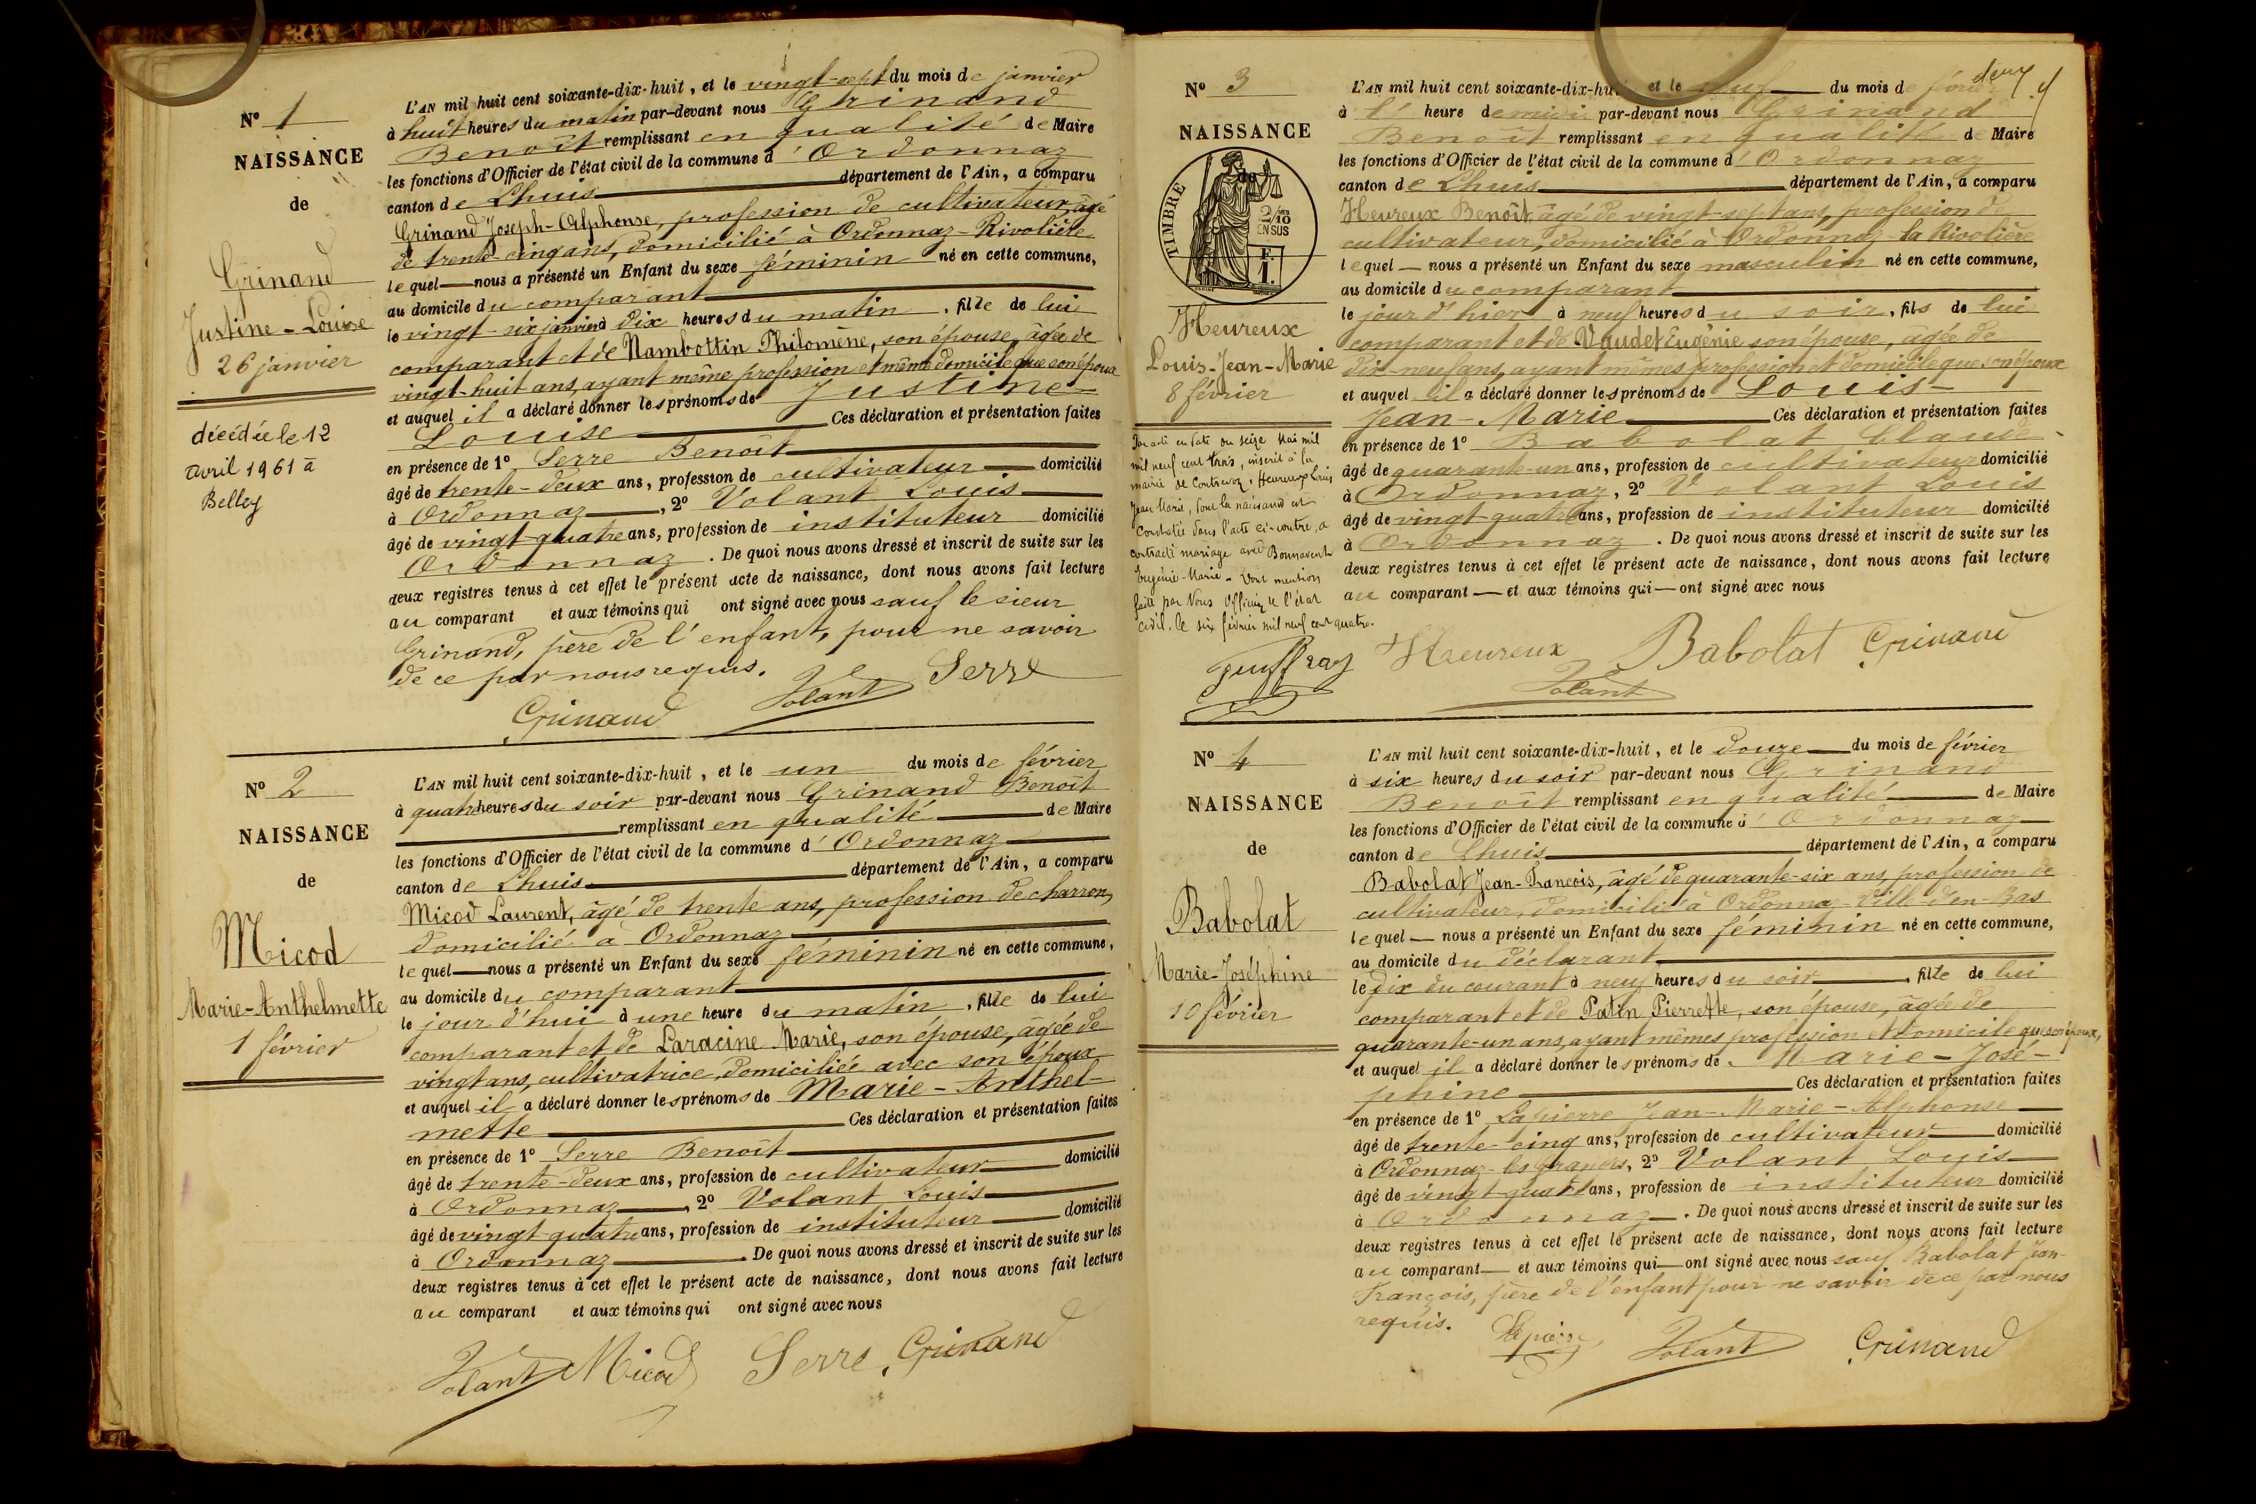 Nº 1
NAISSANCE
de
Grinand
Justine-Louise
26 janvier
décédée le 12
avril 1961 à
Belley
L'AN mil huit cent soixante-dix-huit, et le vingt-sept du mois de janvier
à huit heures du matin par-devant nous Grinand
Benoît remplissant en qualité de Maire
les fonctions d'Officier de l'état civil de la commune d'Ordonnaz
canton de Lhuis département de l'Ain, a comparu
Grinand Joseph-Alphonse, profession de cultivateur, âgé
de trente-cinq ans, domicilié à Ordonnaz-Rivolière
lequel nous a présenté un Enfant du sexe féminin né en cette commune,
au domicile du comparant
le vingt-six janvier à dix heures du matin, fille de lui
comparant et de Nambottin Philomène, son épouse, âgée de
vingt-huit ans, ayant même profession et même domicile que son époux
et auquel il a déclaré donner les prénoms de Justine-
Louise Ces déclaration et présentation faites
en présence de 1º Serre Benoît
âgé de trente-deux ans, profession de cultivateur domicilié
à Ordonnaz, 2º Volant Louis
âgé de vingt-quatre ans, profession de instituteur domicilié
Ordonnaz. De quoi nous avons dressé et inscrit de suite sur les
deux registres tenus à cet effet le présent acte de naissance, dont nous avons fait lecture
au comparant et aux témoins qui ont signé avec nous sauf le sieur
Grinand, père de l'enfant, pour ne savoir
de ce par nous requis.
Volant Serre
Grinand
Nº 2
NAISSANCE
de
Micod
Marie-Anthelmette
1 février
L'AN mil huit cent soixante-dix-huit, et le un du mois de février
à quatre heures du soir par-devant nous Grinand Benoît
remplissant en qualité de Maire
les fonctions d'Officier de l'état civil de la commune d'Ordonnaz
canton de Lhuis département de l'Ain, a comparu
Micod Laurent, âgé de trente ans, profession de charron,
domicilié à Ordonnaz
lequel nous a présenté un Enfant du sexe féminin né en cette commune,
au domicile du comparant
le jour d'hui à une heure du matin, fille de lui
comparant et de Laracine Marie, son épouse, âgée de
vingt ans, cultivatrice, domiciliée avec son époux
et auquel il a déclaré donner les prénoms de Marie-Anthel-
mette Ces déclaration et présentation faites
en présence de 1º Serre Benoît
âgé de trente-deux ans, profession de cultivateur domicilié
à Ordonnaz, 2º Volant Louis
âgé de vingt-quatre ans, profession de instituteur domicilié
à Ordonnaz De quoi nous avons dressé et inscrit de suite sur les
deux registres tenus à cet effet le présent acte de naissance, dont nous avons fait lecture
au comparant et aux témoins qui ont signé avec nous
Volant Micod Serre Grinand
deux
Nº 3
NAISSANCE
de
TIMBRE
2/10 EN SUS
F.
1.
Heureux
Louis-Jean-Marie
8 février
Par acte en date du seize Mai mil
mil neuf cent trois, inscrit à la
mairie de Contrevoz, Heureux Louis
Jean Marie, dont la naissance est
Constatée dans l'acte ci-contre, a
contracté mariage avec Bonnavent
Eugénie-Marie - Dont mention
faite par Nous Officier de l'état
civil. le six février mil neuf cent quatre.
L'AN mil huit cent soixante-dix-hui et le neuf du mois de février
à l' heure de midi par-devant nous Grinand
Benoît remplissant en qualité de Maire
les fonctions d'Officier de l'état civil de la commune d'Ordonnaz
canton de Lhuis département de l'Ain, a comparu
Heureux Benoît, âgé de vingt-sept ans, profession de
cultivateur, domicilié à Ordonnaz-la Rivolière
lequel nous a présenté un Enfant du sexe masculin né en cette commune,
au domicile du comparant
le jour d'hier à neuf heures du soir, fils de lui
comparant et de Vaudet Eugénie son épouse, âgée de
dix-neuf ans, ayant mêmes profession et domicile que son époux
et auquel il a déclaré donner les prénoms de Louis-
Jean-Marie Ces déclaration et présentation faites
en présence de 1º Babolat Claude
âgé de quarante-un ans, profession de cultivateur domicilié
à Ordonnaz, 2º Volant Louis
âgé de vingt-quatre ans, profession de instituteur domicilié
à Ordonnaz. De quoi nous avons dressé et inscrit de suite sur les
deux registres tenus à cet effet le présent acte de naissance, dont nous avons fait lecture
au comparant et aux témoins qui ont signé avec nous
Heureux Babolat Grinand
Volant
Nº 4
NAISSANCE
de
Babolat
Marie-Joséphine
10 février
L'AN mil huit cent soixante-dix-huit, et le douze du mois de février
à six heures du soir par-devant nous Grinand
Benoît remplissant en qualité de Maire
les fonctions d'Officier de l'état civil de la commune d'Ordonnaz
canton de Lhuis département de l'Ain, a comparu
Babolat Jean-François, âgé de quarante-six ans, profession de
cultivateur, domicilié à Ordonnaz-Ville d'en-Bas
lequel nous a présenté un Enfant du sexe féminin né en cette commune,
au domicile du déclarant
le dix du courant à neuf heures du soir, fille de lui
comparant et de Patin Pierrette, son épouse, âgée de
quarante-un ans, ayant mêmes profession et domicile que son époux,
et auquel il a déclaré donner les prénoms de Marie-José-
phine Ces déclaration et présentation faites
en présence de 1º Lapierre Jean-Marie-Alphonse
âgé de trente-cinq ans, profession de cultivateur domicilié
à Ordonnaz-les Granges, 2º Volant Louis
âgé de vingt-quatre ans, profession de instituteur domicilié
à Ordonnaz. De quoi nous avons dressé et inscrit de suite sur les
deux registres tenus à cet effet le présent acte de naissance, dont nous avons fait lecture
au comparant et aux témoins qui ont signé avec nous sauf Babolat Jean-
François, père de l'enfant pour ne savoir de ce par nous
requis.
Lapierre Volant Grinand